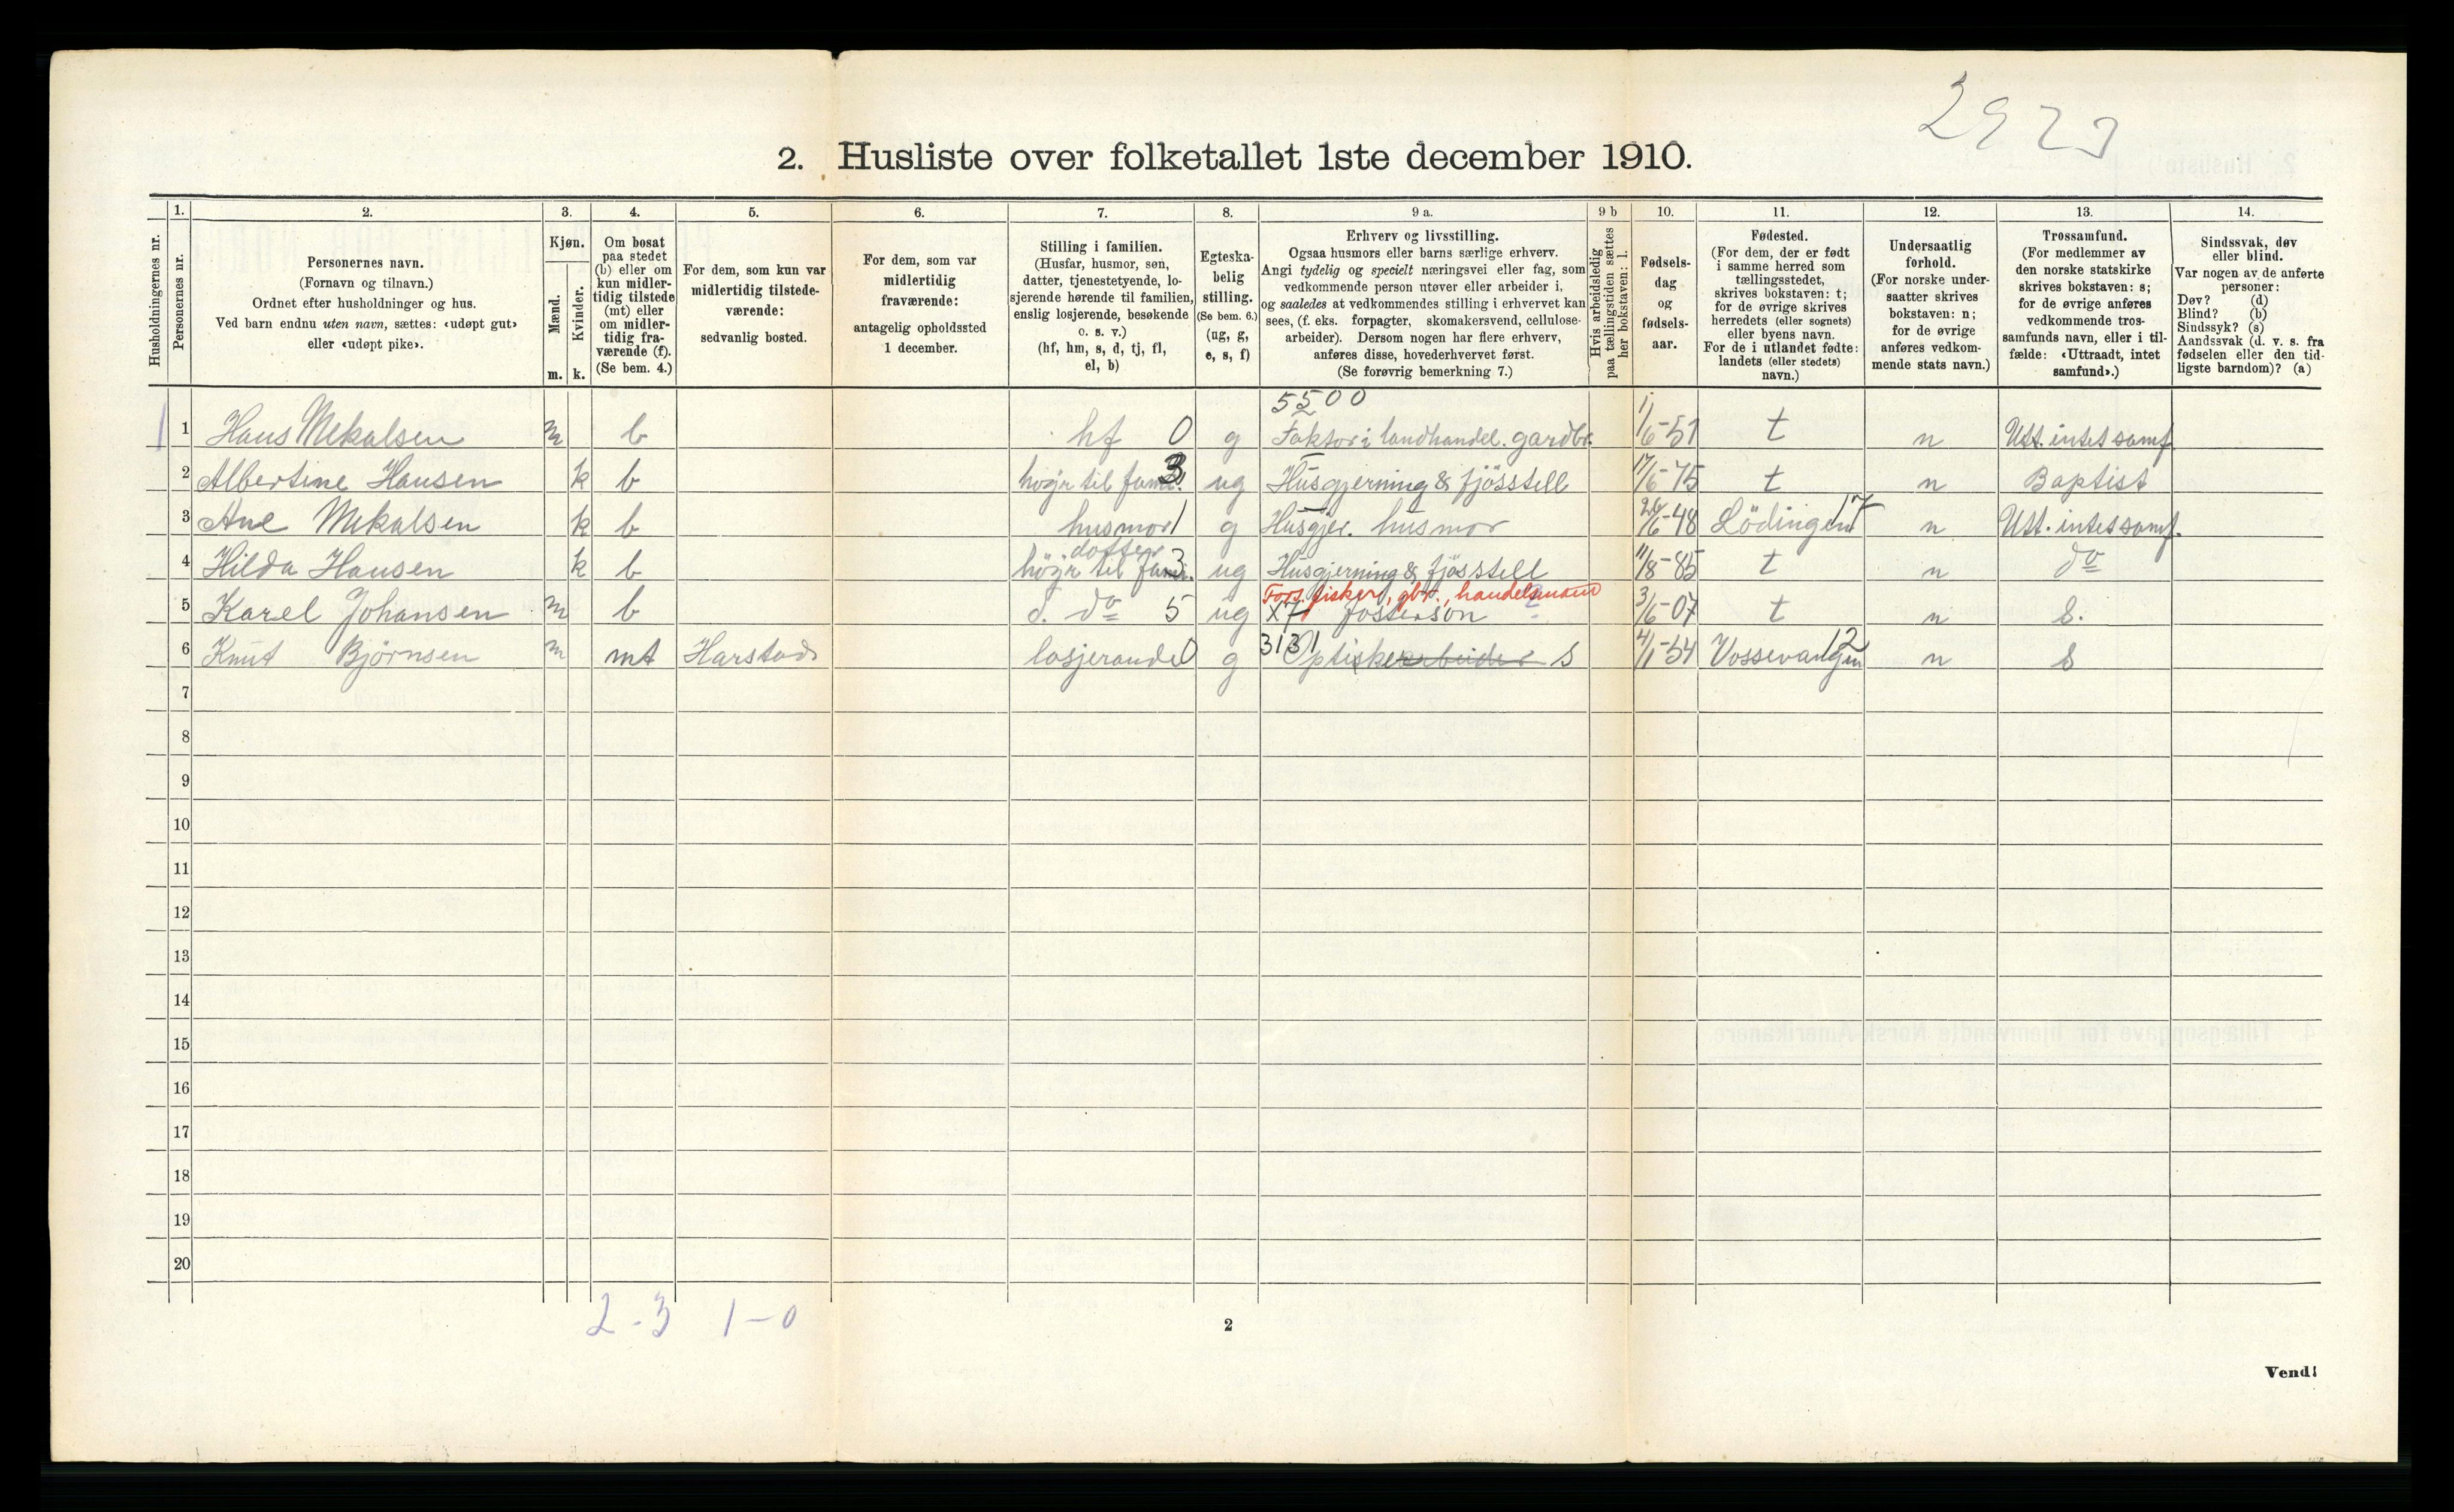 2923
2. Husliste over folketallet 1ste december 1910.
Husholdningernes nr.
1.
Personernes nr.
2.
Personernes navn.
(Fornavn og tilnavn.)
Ordnet efter husholdninger og hus.
Ved barn endnu uten navn, sættes: «udøpt gut»
eller «udøpt pike».
3.
Kjøn.
Mænd.
Kvinder.
m. k.
4.
Om bosat
paa stedet
(b) eller om
kun midler-
tidig tilstede
(mt) eller
om midler-
tidig fra-
værende (f).
(Se bem. 4.)
5.
For dem, som kun var
midlertidig tilstede-
værende:
sedvanlig bosted.
6.
For dem, som var
midlertidig
fraværende:
antagelig opholdssted
1 december.
7.
Stilling i familien.
(Husfar, husmor, søn,
datter, tjenestetyende, lo-
sjerende hørende til familien,
enslig losjerende, besøkende
o. s. v.)
(hf, hm, s, d, tj, fl,
el, b)
8.
Egteska-
belig
stilling.
(Se bem. 6.)
(ug, g,
e, s, f)
9 a.
Erhverv og livsstilling.
Ogsaa husmors eller barns særlige erhverv.
Angi tydelig og specielt næringsvei eller fag, som
vedkommende person utøver eller arbeider i,
og saaledes at vedkommendes stilling i erhvervet kan
sees, (f. eks. forpagter, skomakersvend, cellulose-
arbeider). Dersom nogen har flere erhverv,
anføres disse, hovederhvervet først.
(Se forøvrig bemerkning 7.)
9 b
Hvis arbeidsledig
paa tællingstiden sættes
her bokstaven: l.
10.
Fødsels-
dag
og
fødsels-
aar.
11.
Fødested.
(For dem, der er født
i samme herred som
tællingsstedet,
skrives bokstaven: t;
for de øvrige skrives
herredets (eller sognets)
eller byens navn.
For de i utlandet fødte:
landets (eller stedets)
navn.)
12.
Undersaatlig
forhold.
(For norske under-
saatter skrives
bokstaven: n;
for de øvrige
anføres vedkom-
mende stats navn.)
13.
Trossamfund.
(For medlemmer av
den norske statskirke
skrives bokstaven: s;
for de øvrige anføres
vedkommende tros-
samfunds navn, eller i til-
fælde: «Uttraadt, intet
samfund».)
14.
Sindssvak, døv
eller blind.
Var nogen av de anførte
personer:
Døv? (d)
Blind? (b)
Sindssyk? (s)
Aandssvak (d. v. s. fra
fødselen eller den tid-
ligste barndom)? (a)
5500
1 1 Hans Mekalsen m b hf 0 g Faktor i landhandel. gardbr. 1/6-51 t n Utt. intet samf.
2 Albertine Hansen k b högr til fami. 3 ug Husgjerning & fjösstell 17/6-75 t n Baptist
3 Ane Mekalsen k b husmor 1 g Husgjer. husmor 26/6-48 Lödingen 17 n Utt. intet samf.
dotter
4 Hilda Hansen k b högr til fami. 3 ug Husgjerning & fjösstell 11/8-85 t n do
Fors. fisker, gbr., handelsmand
5 Karel Johansen m b d. do 5 ug X7 fosterson 3/6-07 t n S.
3131
6 Knut Bjørnsen m mt Harstad losjerande 0 g Optiskerarbeider s 4/1-54 Vossevangen 12 n S
7
8
9
10
11
12
13
14
15
16
17
18
19
20
2-3 1-0
2
Vend!